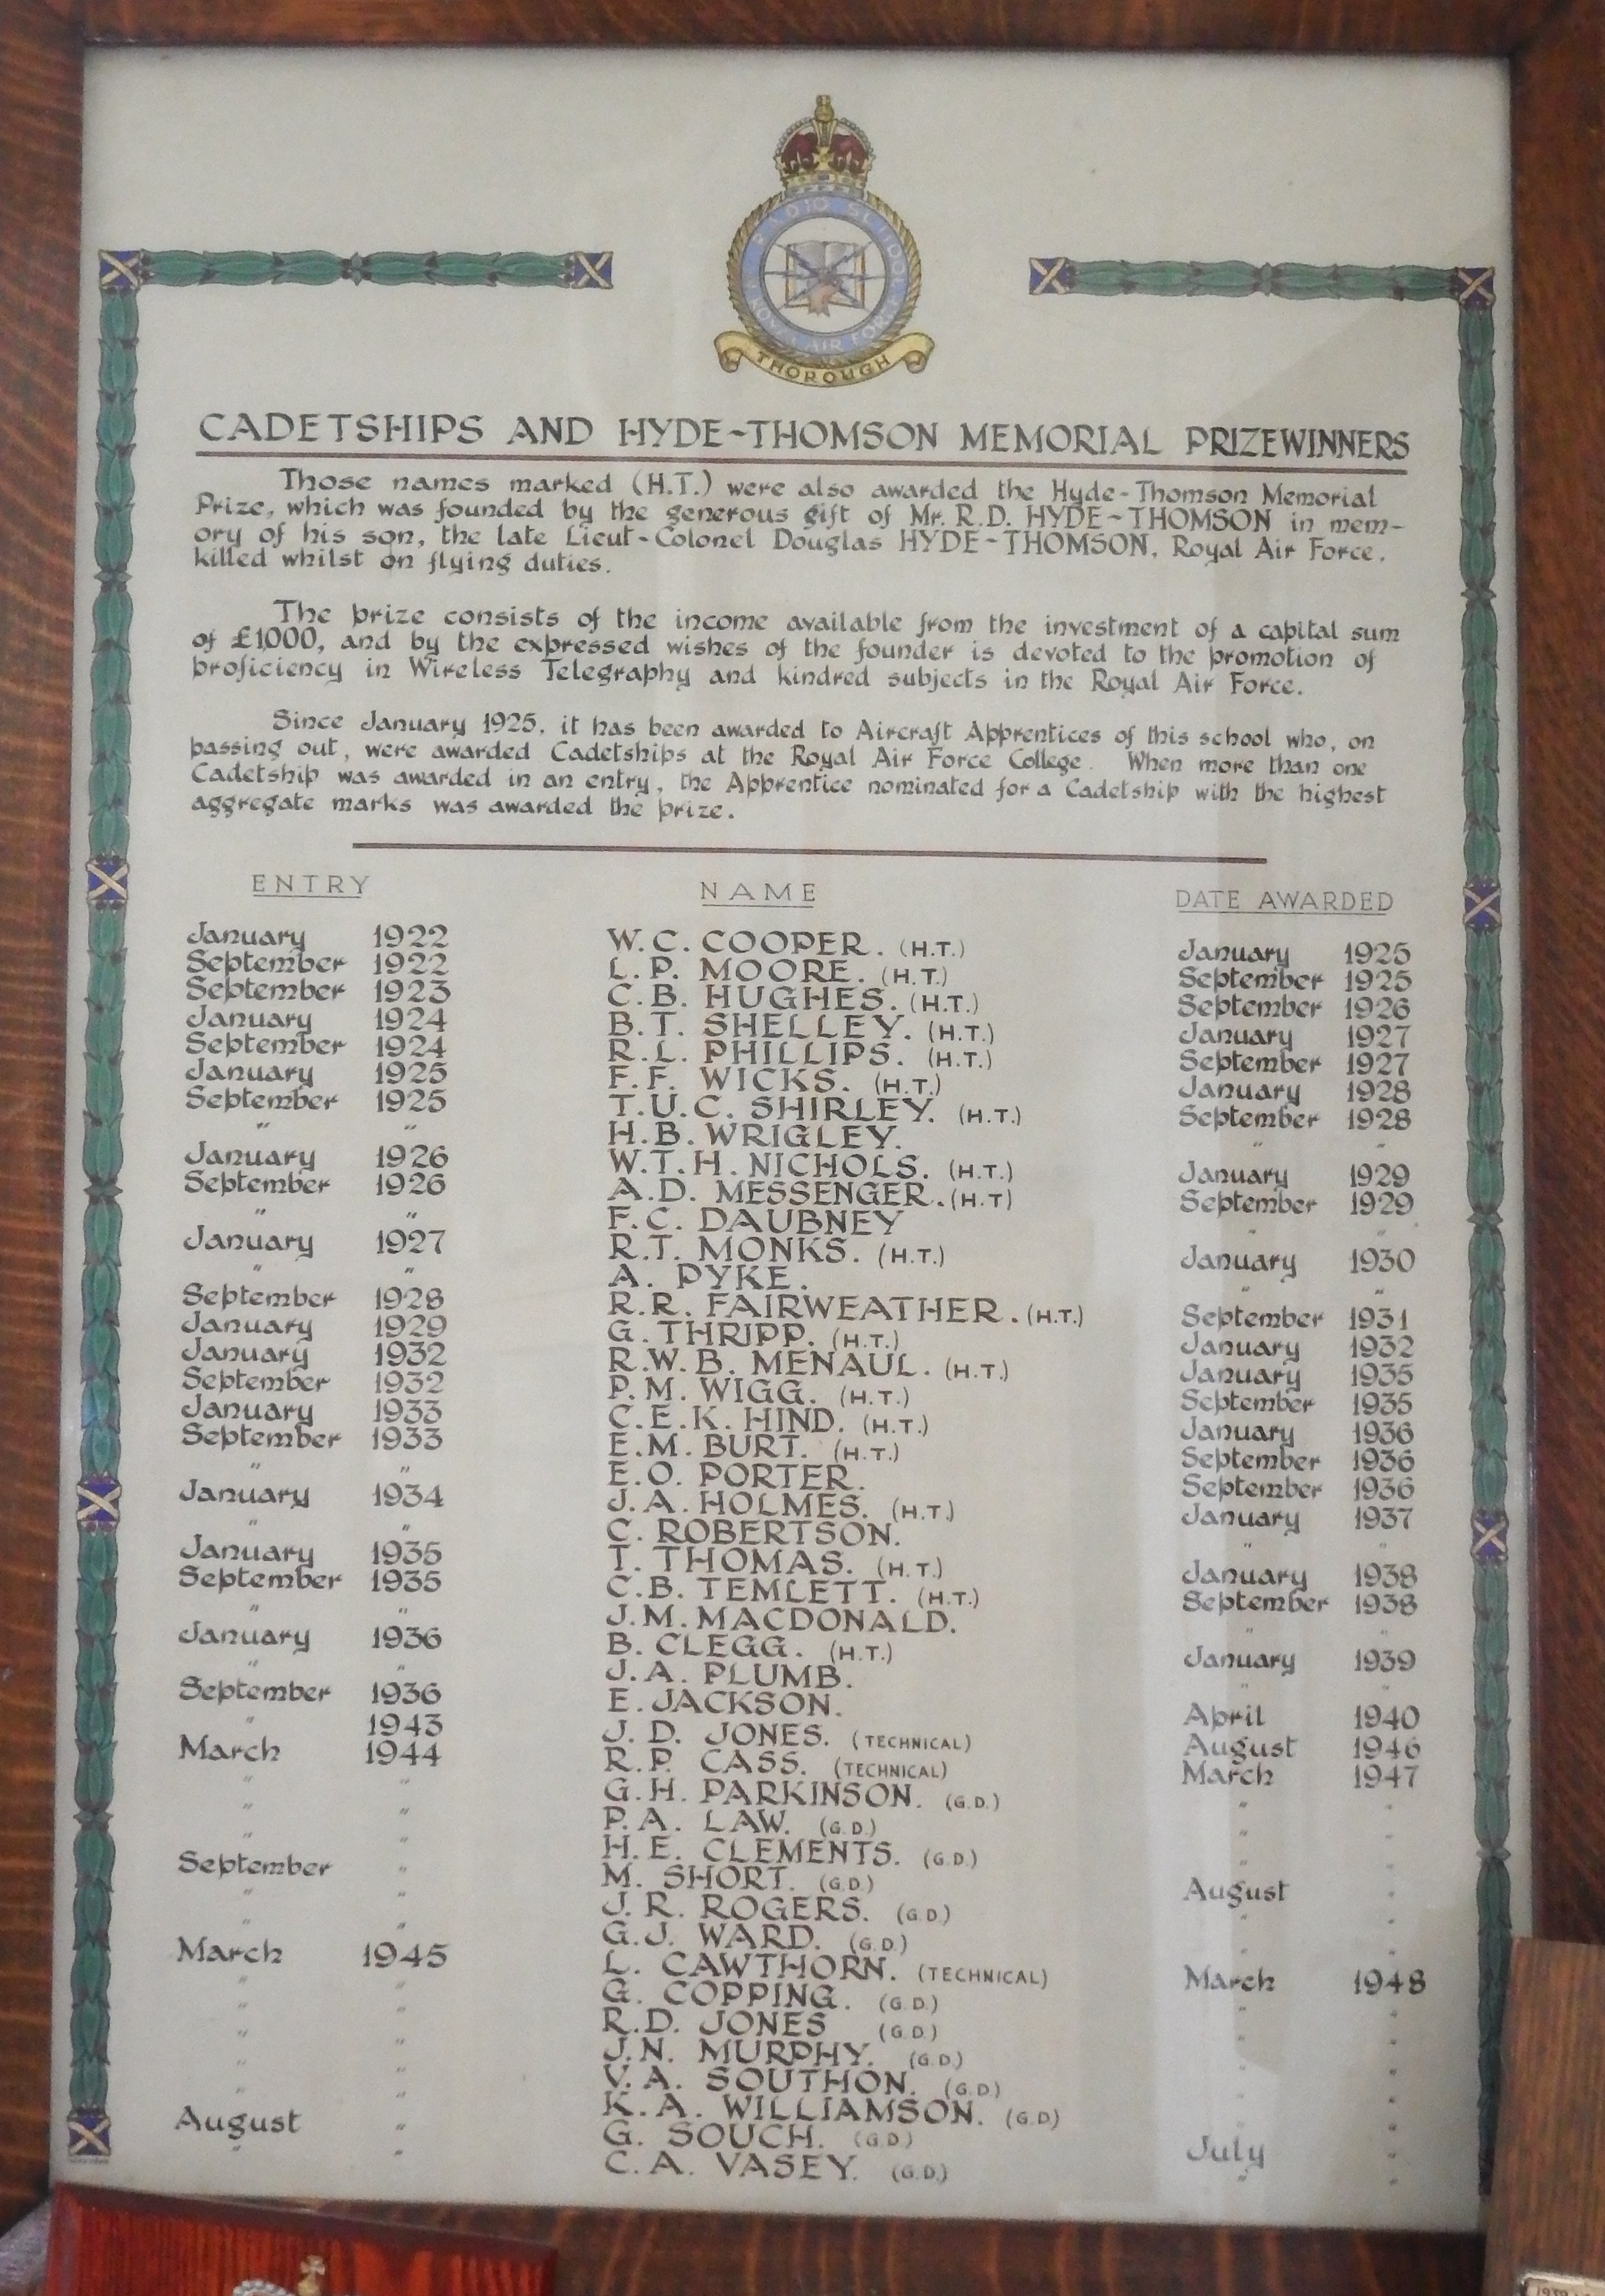 RADIO SCHOOL
ROYAL AIR FORCE
THOROUGH
CADETSHIPS AND HYDE-THOMSON MEMORIAL PRIZEWINNERS
Those names marked (H.T.) were also awarded the Hyde-Thomson Memorial
Prize, which was founded by the generous gift of Mr. R.D. HYDE-THOMSON in mem-
ory of his son, the late Lieut-Colonel Douglas HYDE-THOMSON, Royal Air Force,
killed whilst on flying duties.
The prize consists of the income available from the investment of a capital sum
of £1000, and by the expressed wishes of the founder is devoted to the promotion of
proficiency in Wireless Telegraphy and kindred subjects in the Royal Air Force.
Since January 1925, it has been awarded to Aircraft Apprentices of this school who, on
passing out, were awarded Cadetships at the Royal Air Force College. When more than one
Cadetship was awarded in an entry, the Apprentice nominated for a Cadetship with the highest
aggregate marks was awarded the prize.
ENTRY NAME DATE AWARDED
January 1922 W.C. COOPER. (H.T.) January 1925
September 1922 L.P. MOORE. (H.T.) September 1925
September 1923 C.B. HUGHES. (H.T.) September 1926
January 1924 B.T. SHELLEY. (H.T.) January 1927
September 1924 R.L. PHILLIPS. (H.T.) September 1927
January 1925 F.F. WICKS. (H.T.) January 1928
September 1925 T.U.C. SHIRLEY. (H.T.) September 1928
" " H.B. WRIGLEY. " "
January 1926 W.T.H. NICHOLS. (H.T.) January 1929
September 1926 A.D. MESSENGER. (H.T) September 1929
" " F.C. DAUBNEY " "
January 1927 R.T. MONKS. (H.T.) January 1930
" " A. PYKE. " "
September 1928 R.R. FAIRWEATHER. (H.T.) September 1931
January 1929 G. THRIPP. (H.T.) January 1932
January 1932 R.W.B. MENAUL. (H.T.) January 1935
September 1932 P.M. WIGG. (H.T.) September 1935
January 1933 C.E.K. HIND. (H.T.) January 1936
September 1933 E.M. BURT. (H.T.) September 1936
" " E.O. PORTER. September 1936
January 1934 J.A. HOLMES. (H.T.) January 1937
" " C. ROBERTSON. " "
January 1935 T. THOMAS. (H.T.) January 1938
September 1935 C.B. TEMLETT. (H.T.) September 1938
" " J.M. MACDONALD. " "
January 1936 B. CLEGG. (H.T.) January 1939
" " J.A. PLUMB. " "
September 1936 E. JACKSON. April 1940
" 1943 J.D. JONES. (TECHNICAL) August 1946
March 1944 R.P. CASS. (TECHNICAL) March 1947
" " G.H. PARKINSON. (G.D.) " "
" " P.A. LAW. (G.D.) " "
" " H.E. CLEMENTS. (G.D.) " "
September " M. SHORT. (G.D.) August "
" " J.R. ROGERS. (G.D.) " "
" " G.J. WARD. (G.D.) " "
March 1945 L. CAWTHORN. (TECHNICAL) March 1948
" " G. COPPING. (G.D.) " "
" " R.D. JONES (G.D.) " "
" " J.N. MURPHY. (G.D.) " "
" " V.A. SOUTHON. (G.D.) " "
" " K.A. WILLIAMSON. (G.D) " "
August " G. SOUCH. (G.D.) July "
" " C.A. VASEY. (G.D.) " "